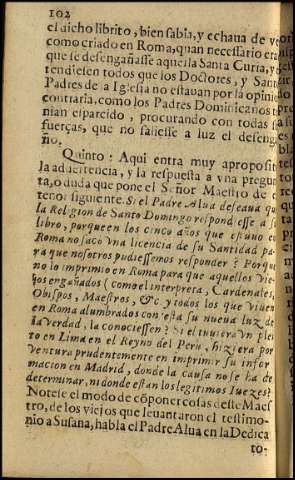 102
el dicho librito, bien sabia, y echaua de
como criado en Roma, quan necessario era
que se desengañasse aquella Santa Curia, y
tendiessen todos que los Doctores, y Sant
Padres de la Iglesia no estauan por la opinió
contraria, como los Padres Dominicanos
nian esparcido, procurando con todas
fuerças, que no saliesse a luz el deseng
ño.
Quinto: Aqui entra muy aproposit
la aduertencia, y la respuesta a vna pregun
ta, o duda que pone el Señor Maestro de e
tenor siguiente. Si el Padre Alua deseaua que
la Religion de Santo Domingo respondiesse a su
libro, porque en los cinco años que estuuo en
Roma no sacò vna licencia de su Santidad pa-
ra que nosotros pudiessemos responder? Porque
no lo imprimio en Roma para que aquellos vie-
jos engañados (como el interpreta, Cardenales,
Obispos, Maestros, &c. y todos los que viuen
en Roma alumbrados con esta su nueua luz de
la verdad, la conociessen? Si el tuuiera vn pley
to en Lima en el Reyno del Perù, hiziera por
ventura prudentemente en imprimir su infor
macion en Madrid, donde la causa no se ha de
determinar, ni donde estan los legitimos Iuezes?
Notese el modo de cõponer cosas deste Maes
tro, de los viejos que leuantaron el testimo-
nio a Susana, habla el Padre Alua en la Dedica
to-